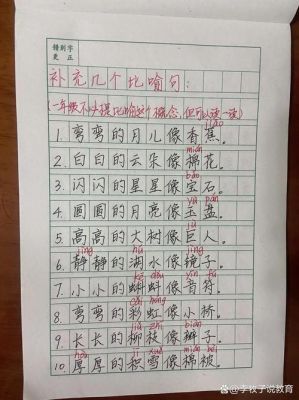 错别字
更正
补充几个比喻句:
(一年级不必提比喻这个概念,但可以读一读)
jiāo
1. 弯弯的月儿像香蕉。
mián
2. 白白的云朵像棉花。
bǎo
3. 闪闪的星星像宝石。
yù pán
4. 圆圆的月亮像玉盘。
jù
5. 高高的大树像巨人。
jìng jìng
6. 静静的湖水像镜子。
kē dǒu yīn fú
7. 小小的蝌蚪像音符。
cǎi hóng
8. 弯弯的彩虹像小桥。
zhī biàn
9. 长长的柳枝像辫子。
hòu xuě mián bèi
10. 厚厚的积雪像棉被。
@李牧子说教育